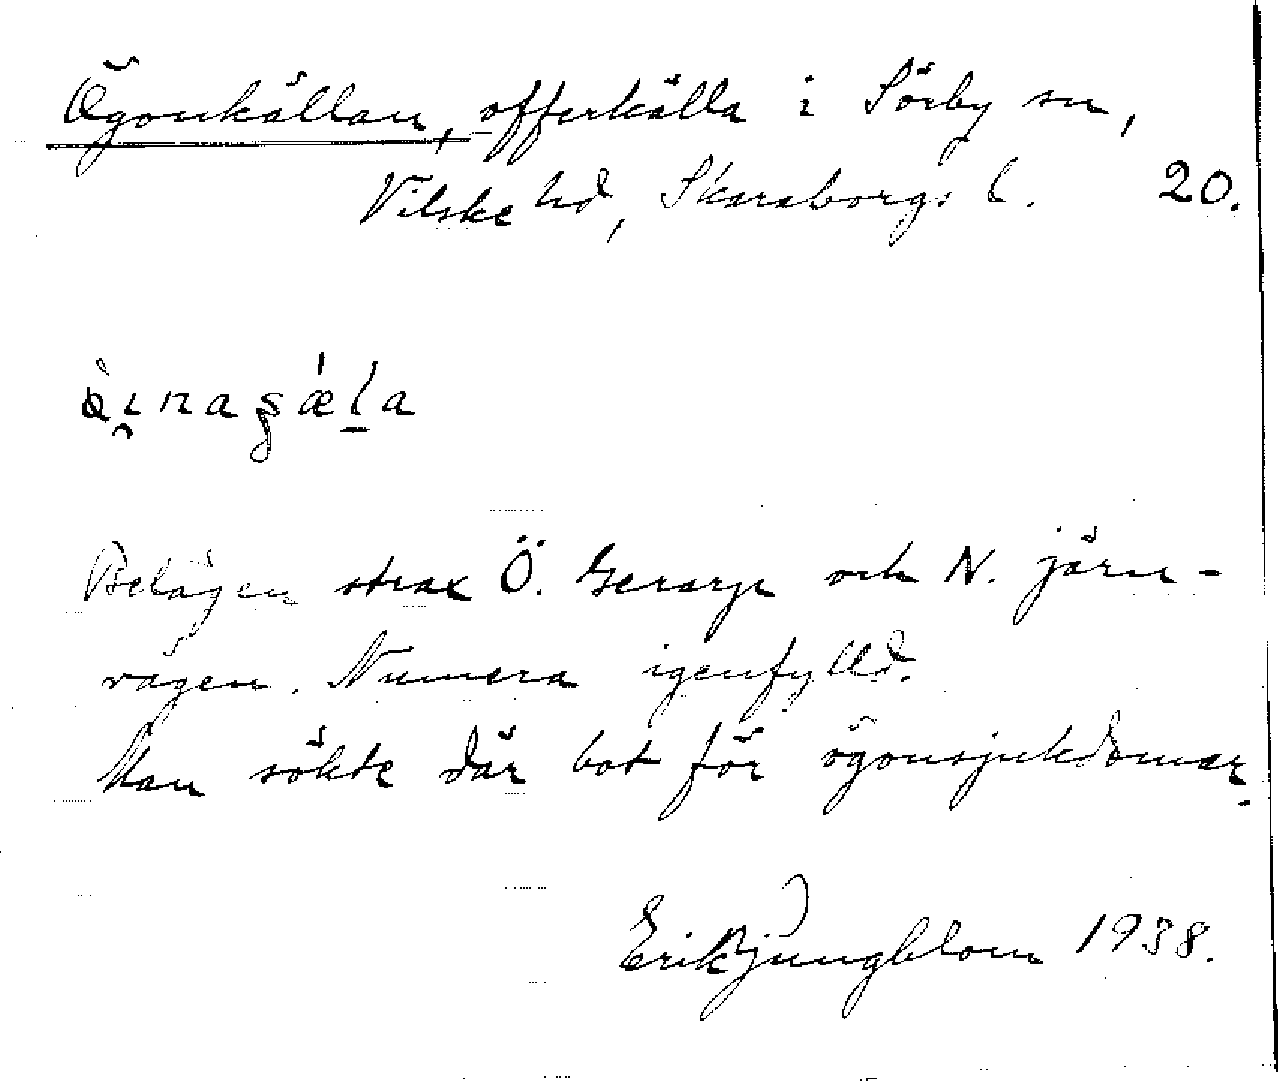 Ögonkällan, offerkälla i Sörby sn,
Vilske hd, Skaraborgs l. 20.
Belägen strax Ö. Gerarp och N. järn-
vägen. Numera igenfylld.
Man sökte där bot för ögonsjukdomar.
Erik Ljungblom 1938.